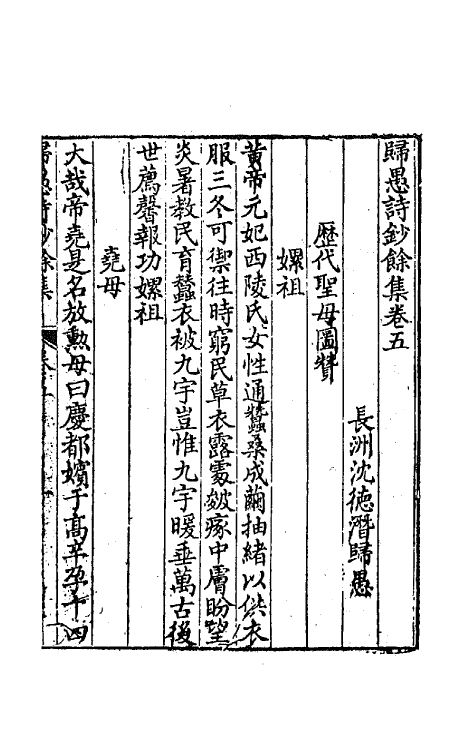 歸愚詩鈔餘集卷五
長洲沈德潛歸愚
歷代聖母圖贊
嫘祖
黄帝元妃西陵氏女性通蠶桑成繭抽緒以供衣
服三冬可禦往時窮民草衣露處皴瘃中膚盼望
炎暑教民育蠶衣被九宇豈惟九宇暖垂萬古後
世薦馨報功嫘祖
堯母
大哉帝堯是名放勲母曰慶都嬪于高辛孕十四
歸愚詩鈔餘集